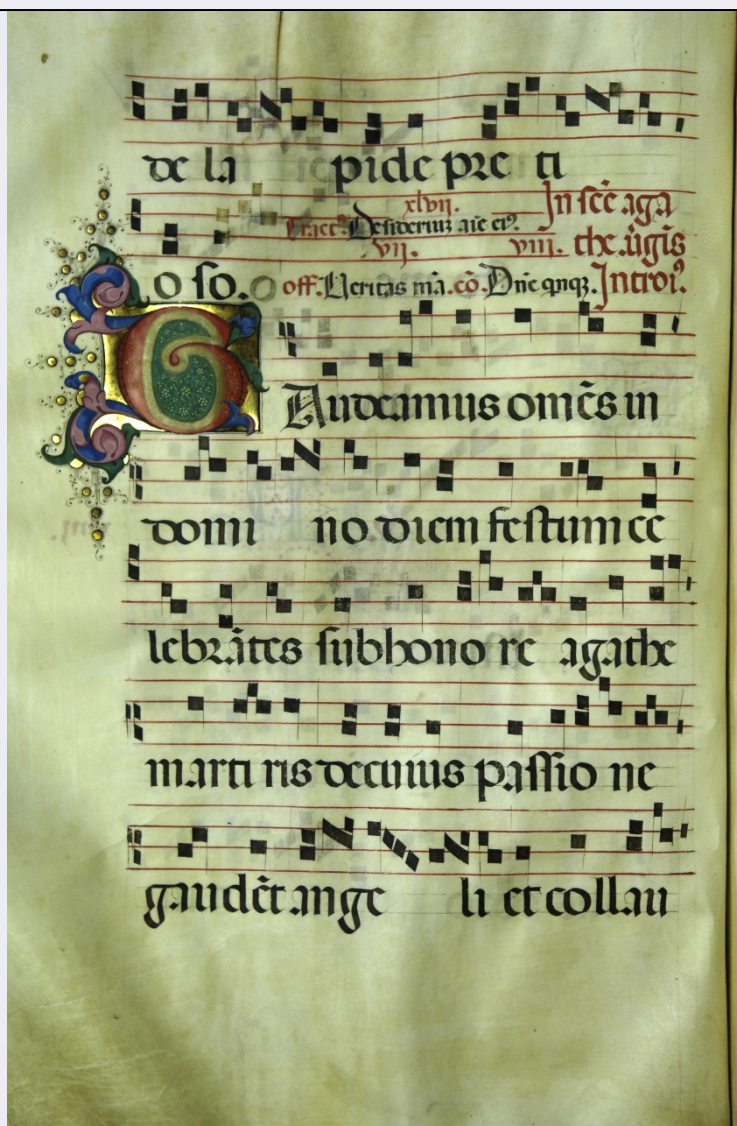 de la pide pre ti
xlvii. In scē aga
Tract⁹. Desideriuz aīe ei⁹.
vii. viii. the ūgīs
o so. off. Ueritas mā. cō. Dñe qnqz. Introi⁹.
Gaudeamus om̄es in
domi no diem festum ce
lebrātes sub hono re agathe
marti ris de cuius passio ne
gaudēt ange li et collau